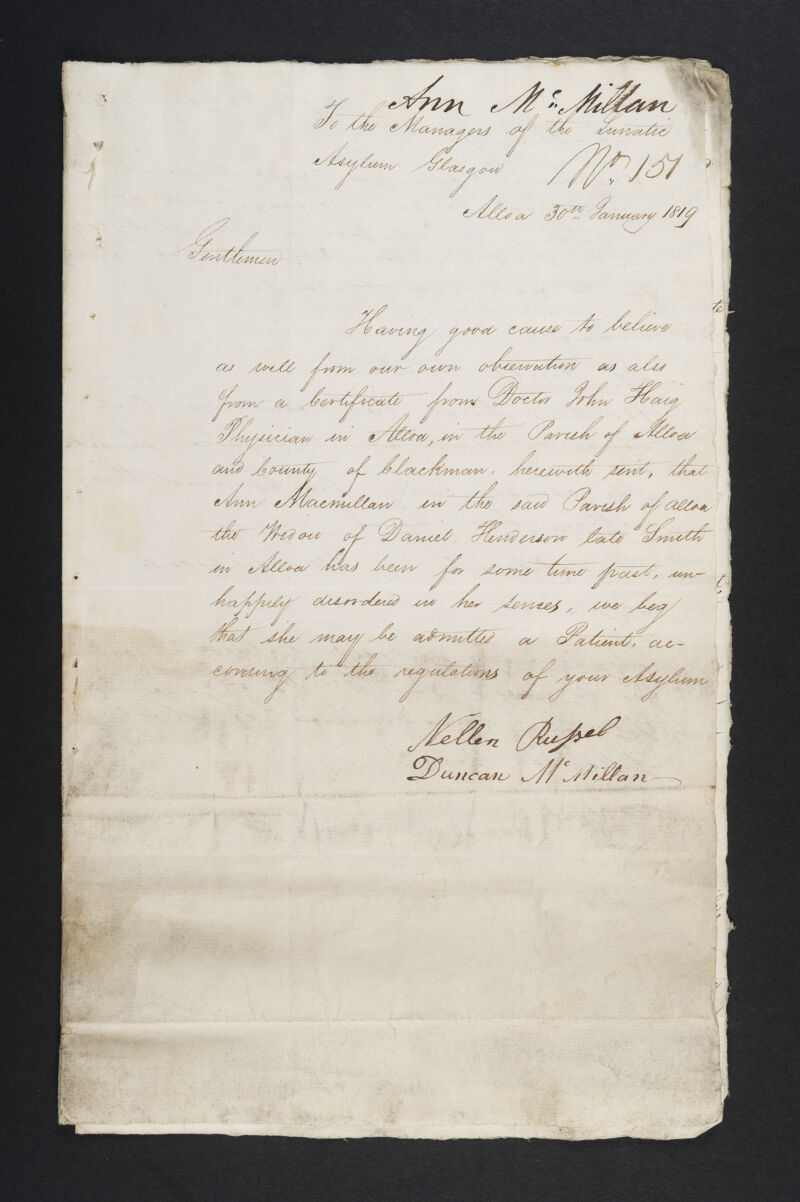 Ann Mc. Millan
To the Managers of the Lunatic
Asylum Glasgow No. 151
Alloa 30th January 1819
Gentlemen
Having good cause to believe
as well from our own observation as also
from a Certificate from Doctor John Haig
Physician in Alloa, in the Parish of Alloa
and County of Clackman. herewith sent, that
Ann Macmillan in the said Parish of alloa
the Widow of Daniel Henderson late Smith
in Alloa has been for some time past, un-
happily disordered in her senses, we beg
that she may be admitted a Patient, ac-
cording to the regulations of your Asylum
Nellen Russel
Duncan Mc Millan